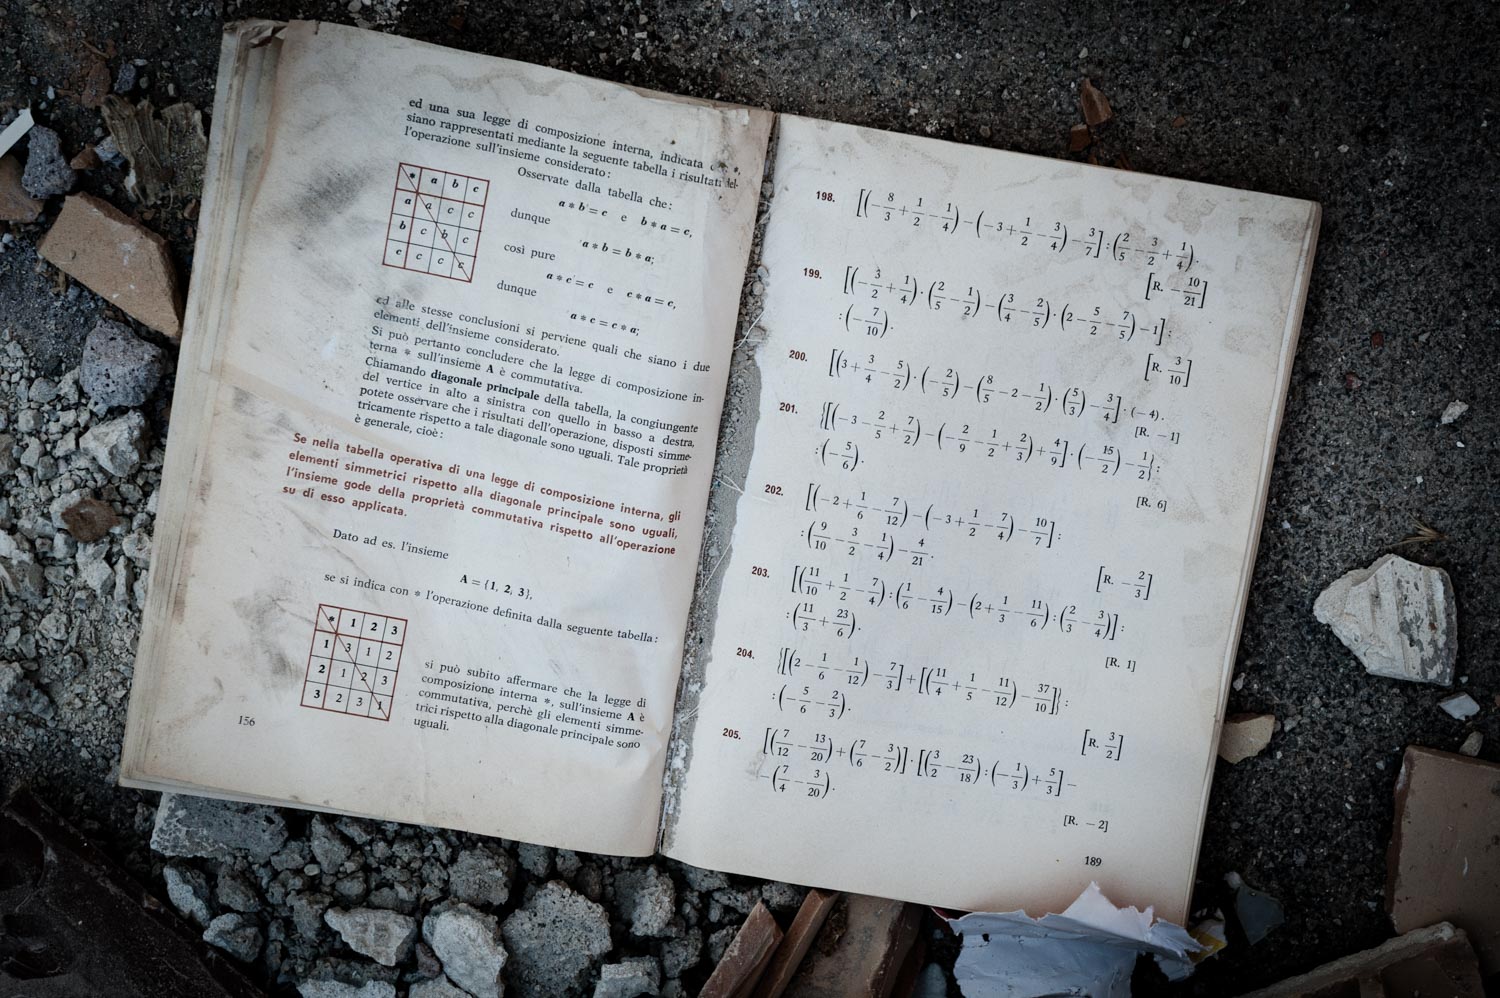 ed una sua legge di composizione interna, indicata *,
siano rappresentati mediante la seguente tabella i risultati del-
l'operazione sull'insieme considerato:
Osservate dalla tabella che:
* a b c
a a c c
b c b c
c c c c
a * b = c e b * a = c,
dunque
a * b = b * a;
così pure
a * c = c e c * a = c,
dunque
a * c = c * a;
ed alle stesse conclusioni si perviene quali che siano i due
elementi dell'insieme considerato.
Si può pertanto concludere che la legge di composizione in-
terna * sull'insieme A è commutativa.
Chiamando diagonale principale della tabella, la congiungente
del vertice in alto a sinistra con quello in basso a destra,
potete osservare che i risultati dell'operazione, disposti simme-
tricamente rispetto a tale diagonale sono uguali. Tale proprietà
è generale, cioè:
Se nella tabella operativa di una legge di composizione interna, gli
elementi simmetrici rispetto alla diagonale principale sono uguali,
l'insieme gode della proprietà commutativa rispetto all'operazione
su di esso applicata.
Dato ad es. l'insieme
A = {1, 2, 3},
se si indica con * l'operazione definita dalla seguente tabella:
* 1 2 3
1 3 1 2
2 1 2 3
3 2 3 1
si può subito affermare che la legge di
composizione interna *, sull'insieme A è
commutativa, perchè gli elementi simme-
trici rispetto alla diagonale principale sono
uguali.
156
198. [(-8/3 + 1/2 - 1/4) - (-3 + 1/2 - 3/4) - 3/7] : (2/5 - 3/2 + 1/4).
[R. -10/21]
199. [(-3/2 + 1/4) · (2/5 - 1/2) - (3/4 - 2/5) · (2 - 5/2 - 7/5) - 1] :
: (-7/10).
[R. 3/10]
200. [(3 + 3/4 - 5/2) · (-2/5) - (8/5 - 2 - 1/2) · (5/3) - 3/4] : (-4).
[R. -1]
201. {[(-3 - 2/5 + 7/2) - (-2/9 - 1/2 + 2/3) + 4/9] · (-15/2) - 1/2} :
: (-5/6).
[R. 6]
202. [(-2 + 1/6 - 7/12) - (-3 + 1/2 - 7/4) - 10/7] :
: (9/10 - 3/2 - 1/4) - 4/21.
[R. -2/3]
203. [(11/10 + 1/2 - 7/4) : (1/6 - 4/15) - (2 + 1/3 - 11/6) : (2/3 - 3/4)] :
: (11/3 + 23/6).
[R. 1]
204. {[(2 - 1/6 - 1/12) - 7/3] + [(11/4 + 1/5 - 11/12) - 37/10]} :
: (-5/6 - 2/3).
[R. 3/2]
205. [(7/12 - 13/20) + (7/6 - 3/2)] · [(3/2 - 23/18) : (-1/3) + 5/3] -
- (7/4 - 3/20).
[R. -2]
189